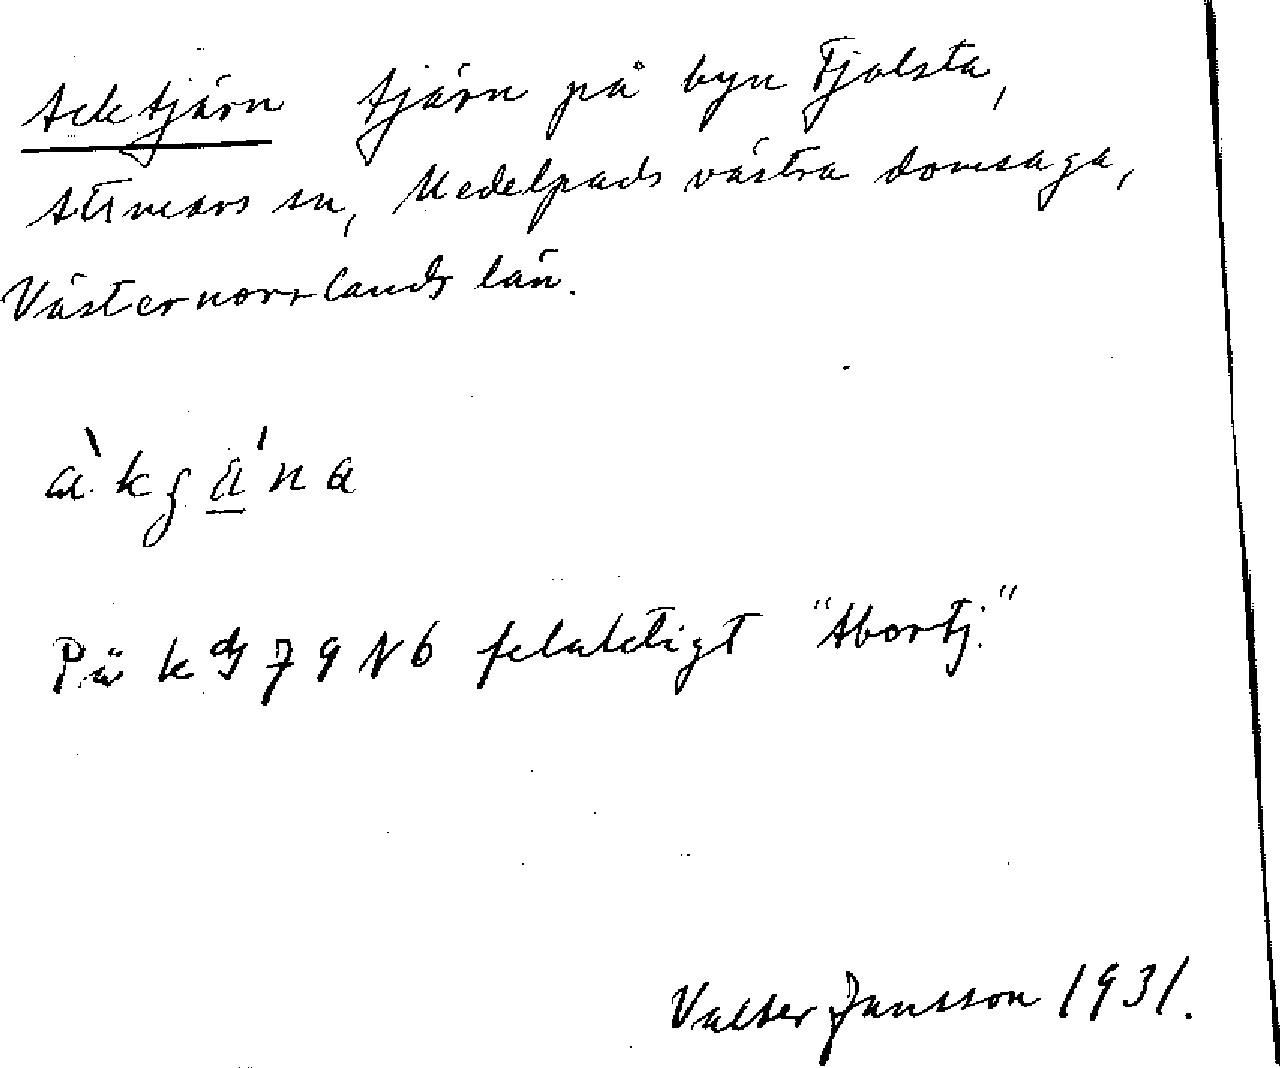 Acktjärn tjärn på byn Fjolsta,
Attmars sn, Medelpads västra domsaga,
Västernorrlands län.
På kbl 79 N6 felaktigt "Abortj."
Valter Jansson 1931.